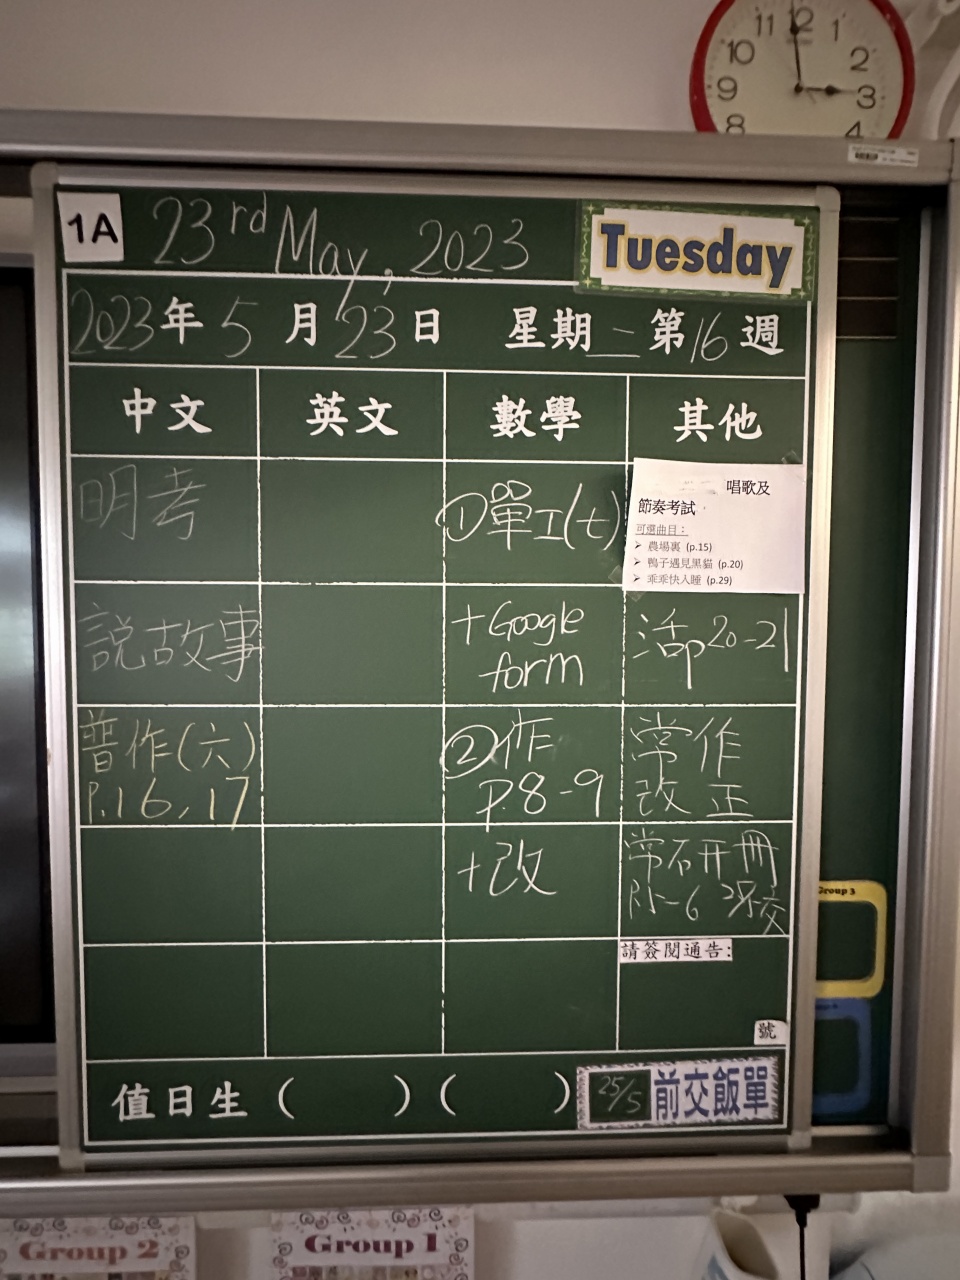 11 12 1
10 2
9 3
8 4
1A
23rd May, 2023
Tuesday
2023年5月23日 星期二第16週
中文 英文 數學 其他
明考
①單工(七)
唱歌及
節奏考試
可選曲目：
➤ 農場裏 (p.15)
➤ 鴨子遇見黑貓 (p.20)
➤ 乖乖快入睡 (p.29)
說故事
+Google
form
活p20-21
普作(六)
P.16,17
②作
P.8-9
常作
改正
+改
常研冊
請簽閱通告:
號
值日生 ( ) ( )
25/5 前交飯單
Group 3
Group 2
Group 1